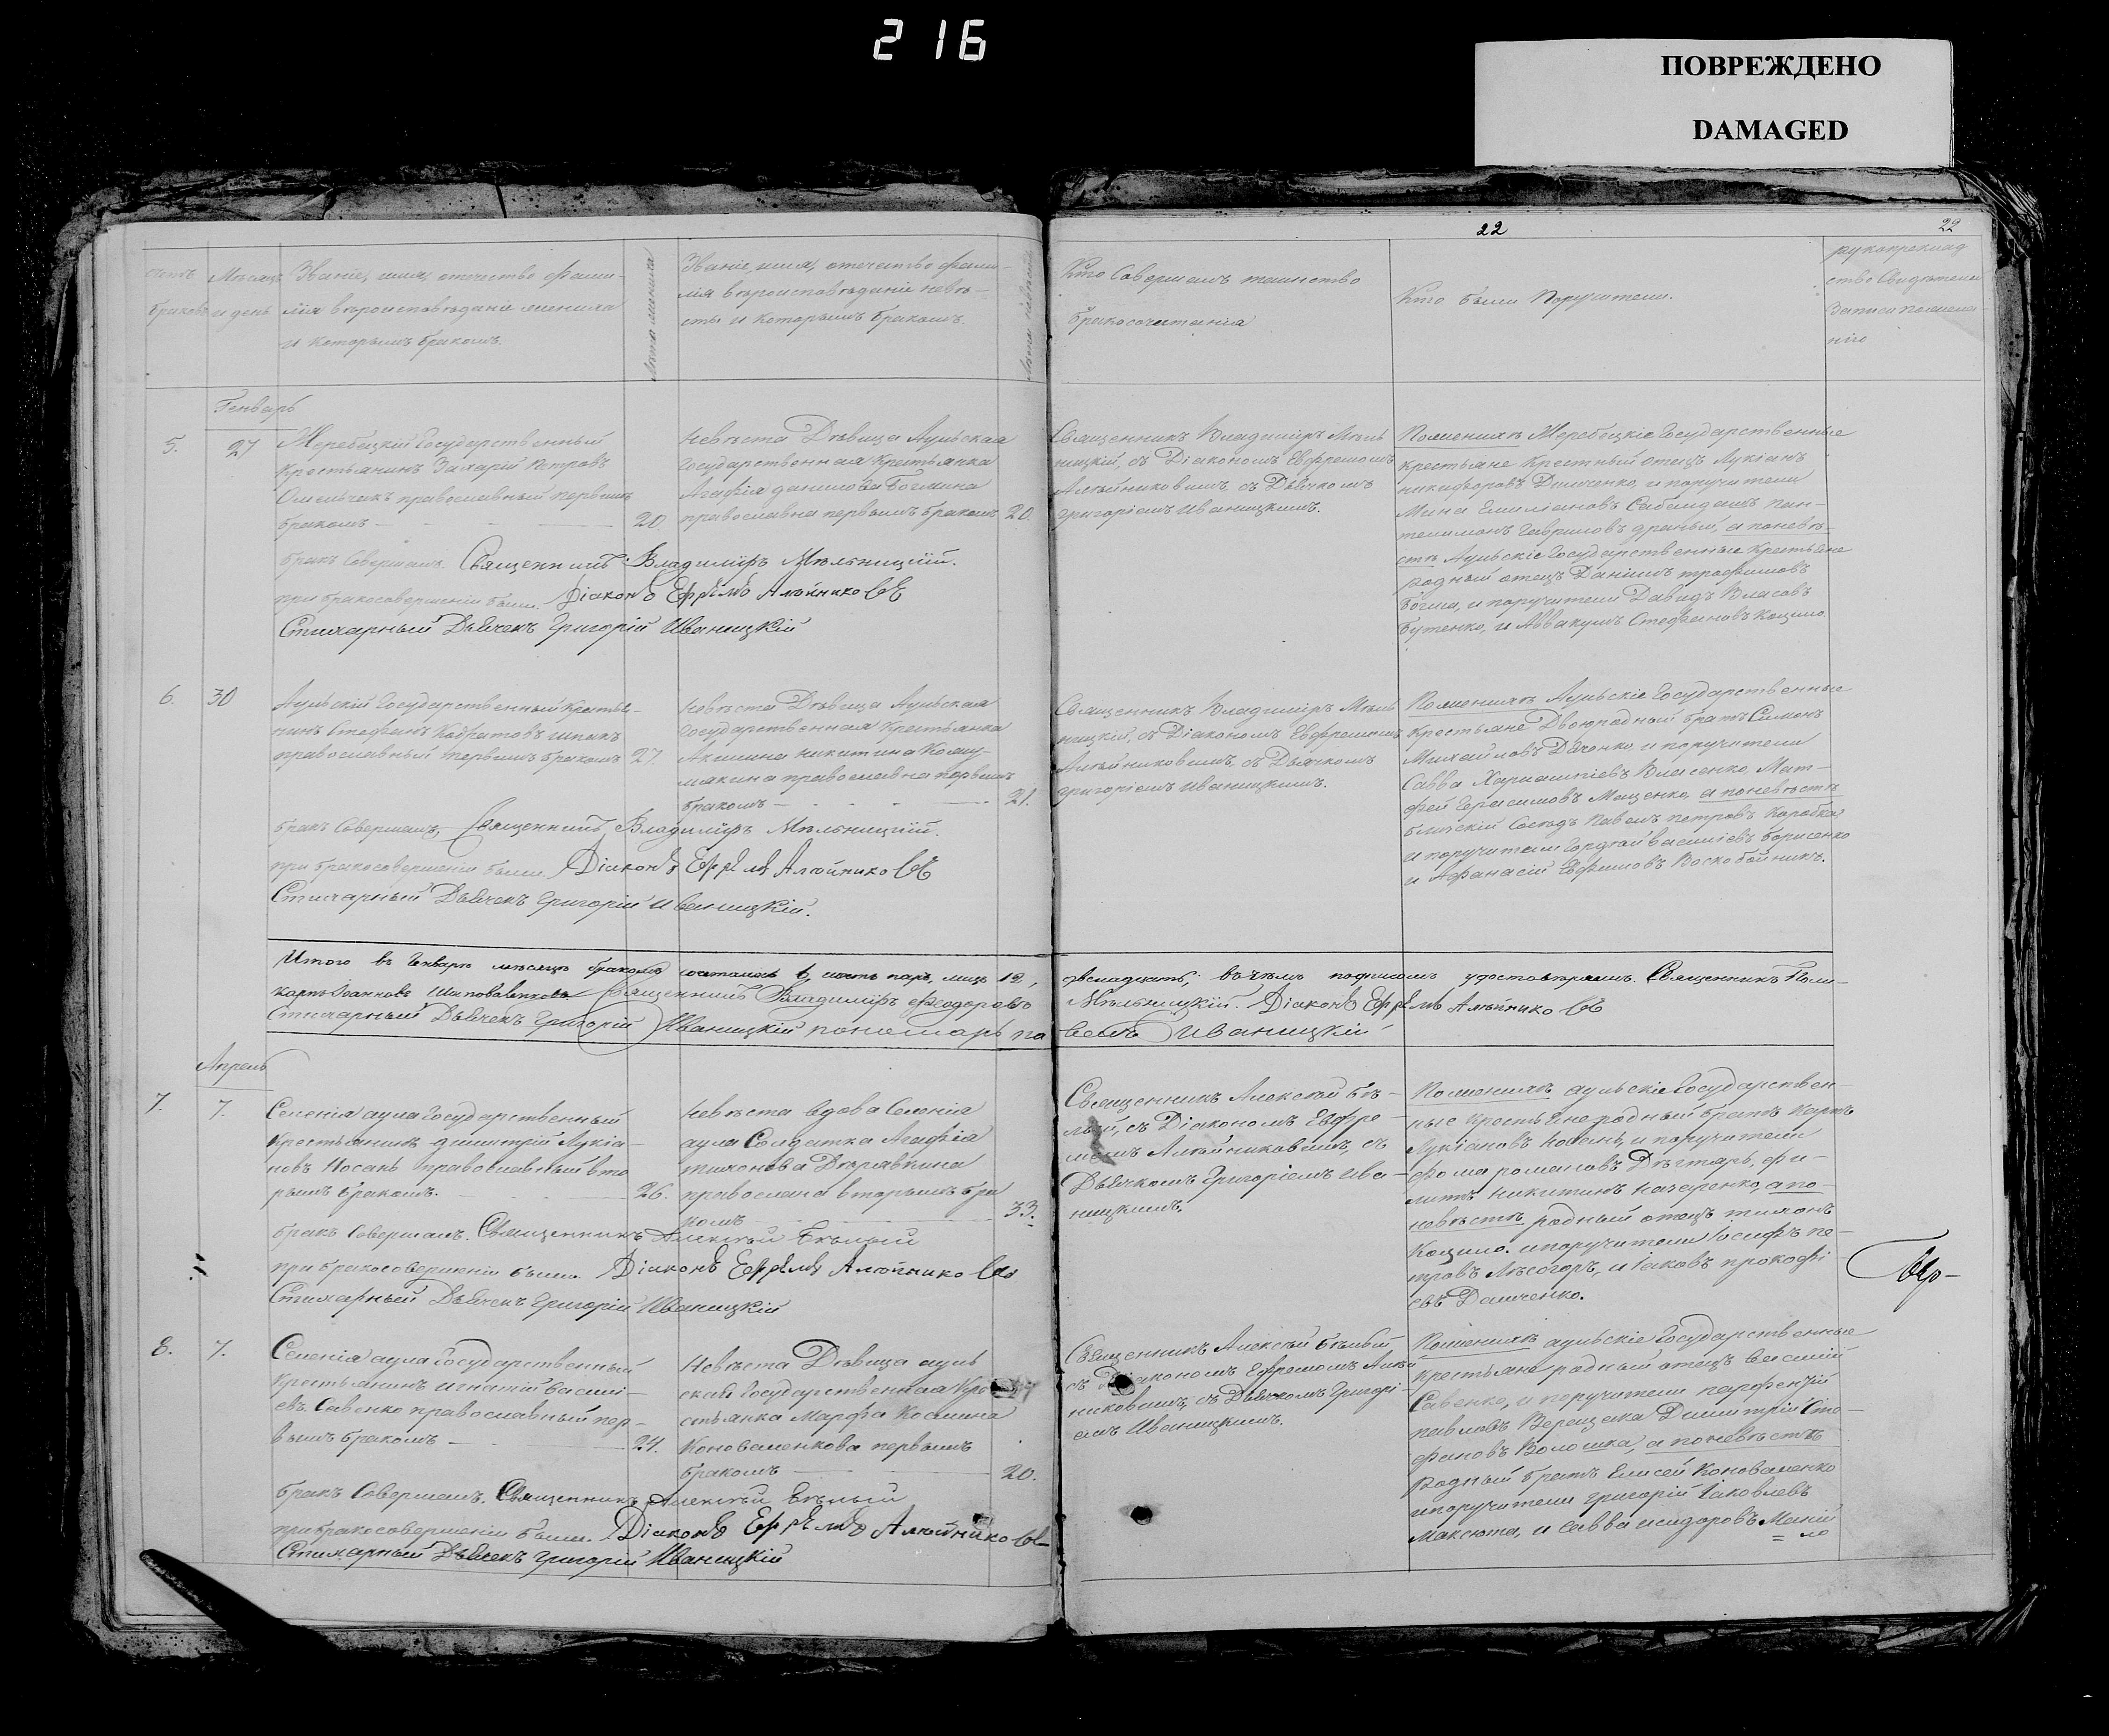 216
ПОВРЕЖДЕНО
DAMAGED
22
22
счетъ браковъ
Мѣсяцъ и день
Званіе, имя, отечество фами-
лія вѣроисповѣданіе жениха
и которымъ бракомъ.
Лѣта жениха
Званіе, имя, отечество фами-
лія вѣроисповѣданіе невѣ-
сты и которымъ бракомъ.
Лѣта невѣсты
Кто Совершалъ таинство
бракосочетанія
Кто были Поручители.
рукоприклад
ство Свидѣтелей
Записи
Генварь
5.
27
Жеребецкій Государственный
Крестьянинъ Захарій Петровъ
Омельчакъ православный первымъ
бракомъ
20
Невѣста Дѣвица Аульская
Государственная Крестьянка
Агафія данилова Богмина
православна первымъ бракомъ
20
Священникъ Владиміръ Мѣль
ницкій, съ Діакономъ Евфремомъ
Алѣйниковымъ, съ Дьячкомъ
григоріемъ иваницкимъ.
По женихѣ Жеребецкіе Государственные
крестьяне Крестный отецъ Лукіанъ
никифоровъ Димченко, и поручители
Мина Емиліановъ Сабалдашъ Пан-
телимонъ Гавриловъ драный, а по невѣ-
стѣ Аульскіе Государственные Крестьяне
родный отецъ Даніилъ трофимовъ
Богма, и поручители Давидъ Власовъ
Бутенко, и Аввакумъ Стефановъ Кощило.
бракъ Совершалъ. Священникъ Владиміръ Мѣльницкій.
при бракосовершеніи были. Діаконъ Ефрѣмъ Алѣйниковъ
Стихарный Дьячекъ Григорій Иваницкій
6.
30
Аульскій Государственный Крестья-
нинъ Стефанъ Кодратовъ шпакъ
православный первымъ бракомъ
27
Невѣста Дѣвица Аульская
Государственная Крестьянка
Акилина никитина
православна первымъ
бракомъ
21.
Священникъ Владиміръ Мѣль
ницкій, съ Діакономъ Евфремомъ
Алѣйниковымъ, съ Дьячкомъ
григоріемъ иваницкимъ.
По женихѣ Аульскіе Государственные
Крестьяне Двоюродный братъ Симонъ
Михайловъ Дяченко, и поручители
Савва Харлампіевъ Власенко, Мат-
фей Герасимовъ Маценко, а по невѣстѣ
Сосѣдъ Павелъ петровъ Коробка
и поручители Гордѣй василіевъ борисенко
и Афанасій Ефимовъ Воскобойникъ.
бракъ Совершалъ, Священникъ Владиміръ Мѣльницкій.
при бракосовершеніи были. Діаконъ Ефрѣмъ Алѣйниковъ
Стихарный Дьячекъ Григорій Иваницкій.
Итого въ Генварѣ мѣсяцѣ бракомъ сочеталось 6, шесть паръ, лицъ 12, двенадцать; въ чемъ подписомъ удостовѣряемъ. Священникъ Поли-
карпъ Іоанновъ Шаповаленковъ Священникъ Владиміръ Феодоровъ Мѣльницкій. Діаконъ Ефрѣмъ Алѣйниковъ
Стихарный Дьячекъ Григорій Иваницкій пономарь павелъ Иваницкій
Апрель
7.
7.
Селенія аула Государственный
Крестьянинъ димитрій Лукіа-
новъ Носань православный вто
рымъ бракомъ.
26.
Невѣста вдова Селенія
аула Солдатка Агафія
тихонова Дѣрявкина
православна вторымъ бра
комъ
33.
Священникъ Алексѣй Бѣ-
лый, съ Діакономъ Евфре-
момъ Алѣйниковымъ, съ
Дьячкомъ Григоріемъ Ива-
ницкимъ.
По женихѣ аульскіе Государствен-
ные Крестьяне родный братъ Карпъ
Лукіановъ Носань, и поручители
фома романовъ Дѣгтярь, фи-
липъ Никитинъ Назаренко, а по
невѣстѣ родный отецъ тихонъ
Кощило. и поручители Іосифъ пе-
тровъ Лѣсогоръ, и Іаковъ прокофі-
евъ Данченко.
бракъ Совершалъ. Священникъ Алексѣй Бѣлый
при бракосовершеніи были. Діаконъ Ефрѣмъ Алѣйниковъ
Стихарный Дьячекъ Григорій Иваницкій
8.
7.
Селенія аула Государственный
Крестьянинъ игнатій васил-
евъ Савенко православный пер-
вымъ бракомъ
24.
Невѣста Дѣвица ауль
ская Государственная Кре
стьянка Марфа Космина
Коноваленкова первымъ
бракомъ
20.
Священникъ Алексѣй Бѣлый
съ Діакономъ Ефремомъ Алѣй
никовымъ, съ Дьячкомъ Григорі-
емъ Иваницкимъ.
По женихѣ аульскіе Государственные
крестьяне родный отецъ василій
Савенко, и поручители парфентій
павловъ Верещака Димитрій Сте-
фановъ Волошка, а по невѣстѣ
Родный братъ Елисей Коноваленко
и поручители григорій Іаковлевъ
Максюта, и Савва исидоровъ Маній
ло
бракъ Совершалъ. Священникъ Алексѣй Бѣлый
при бракосовершеніи были. Діаконъ Ефрѣмъ Алѣйниковъ
Стихарный Дьячекъ Григорій Иваницкій